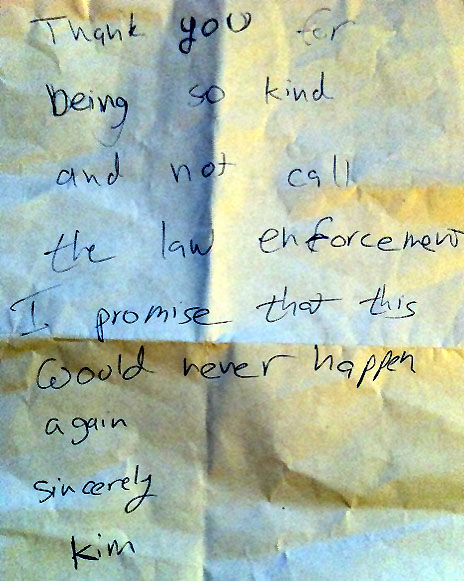 Thank you for
being so kind
and not call
the law enforcement
I promise that this
would never happen
again
sincerely
kim